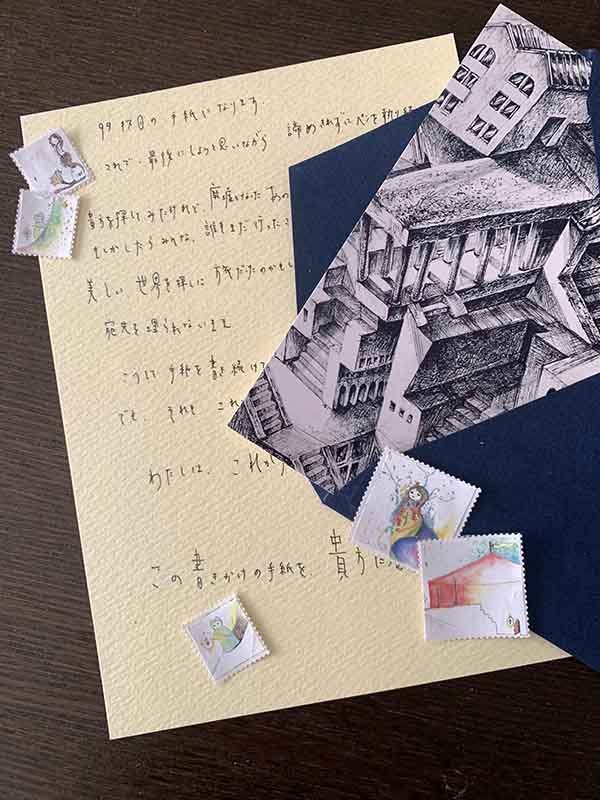 99枚目の手紙になります.
これで最後にしようと思いながら 諦めきれずにペンを執り続
貴方を探してみたけれど、廃墟となったあの
もしかしたらみんな、誰もまだ行ったこ
美しい世界を探しに旅だったのかもし
宛先も埋められないまま
こうして手紙を書き続けて
でも、それも これ
わたしは、これから
この書きかけの手紙を、貴方に